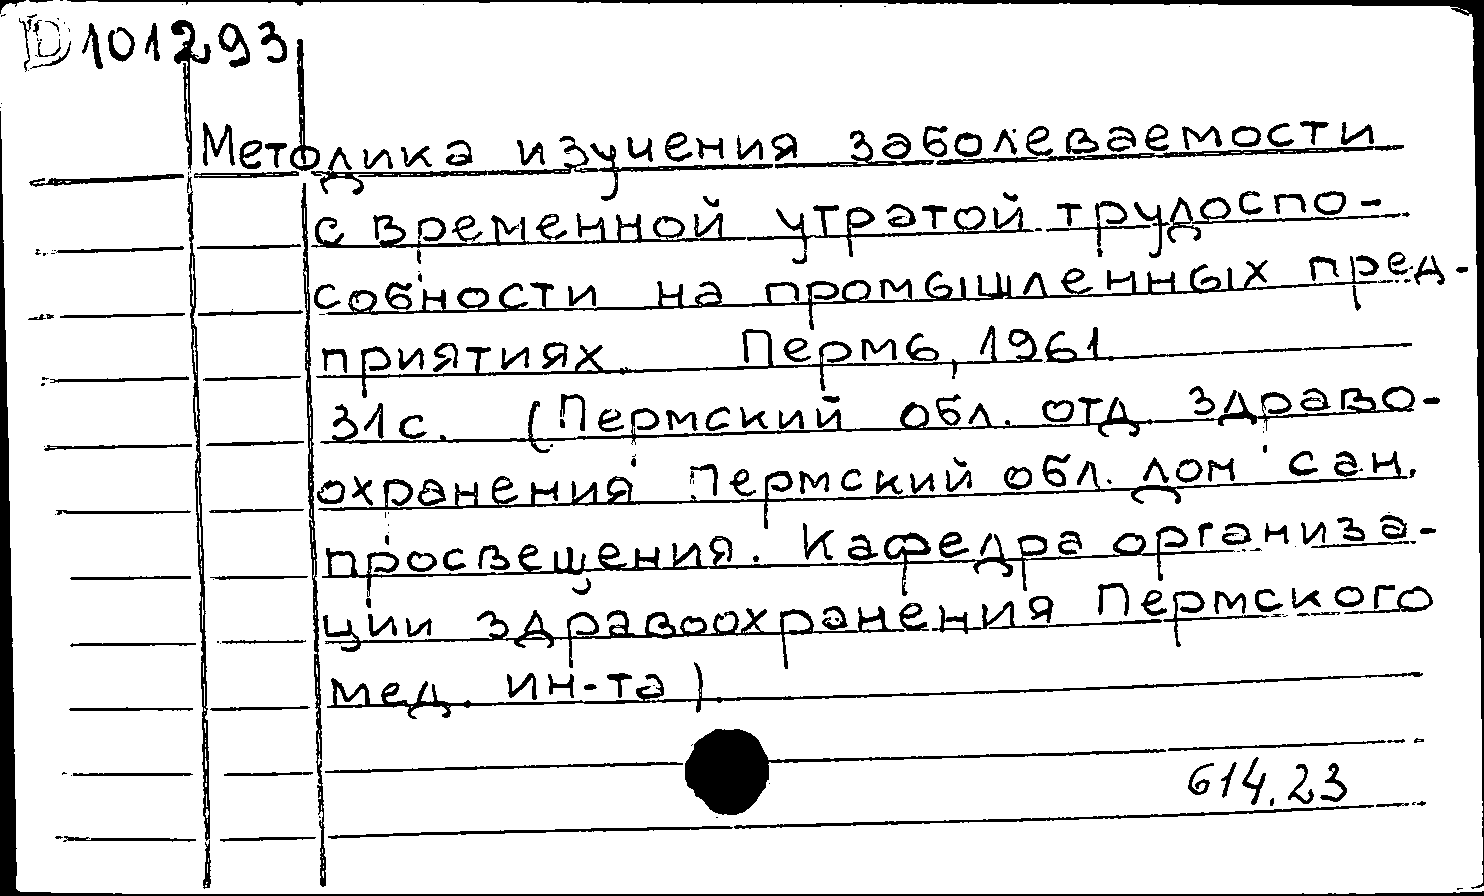 D101293
Методика изучения заболеваемости
с временной утратой трудоспо-
собности на промышленных пред-
приятиях. Пермь, 1961.
31с. (Пермский обл. отд. здраво-
охранения Пермский обл. дом сан.
просвещения. Кафедра организа-
ции здравоохранения Пермского
мед. ин-та).
614.23